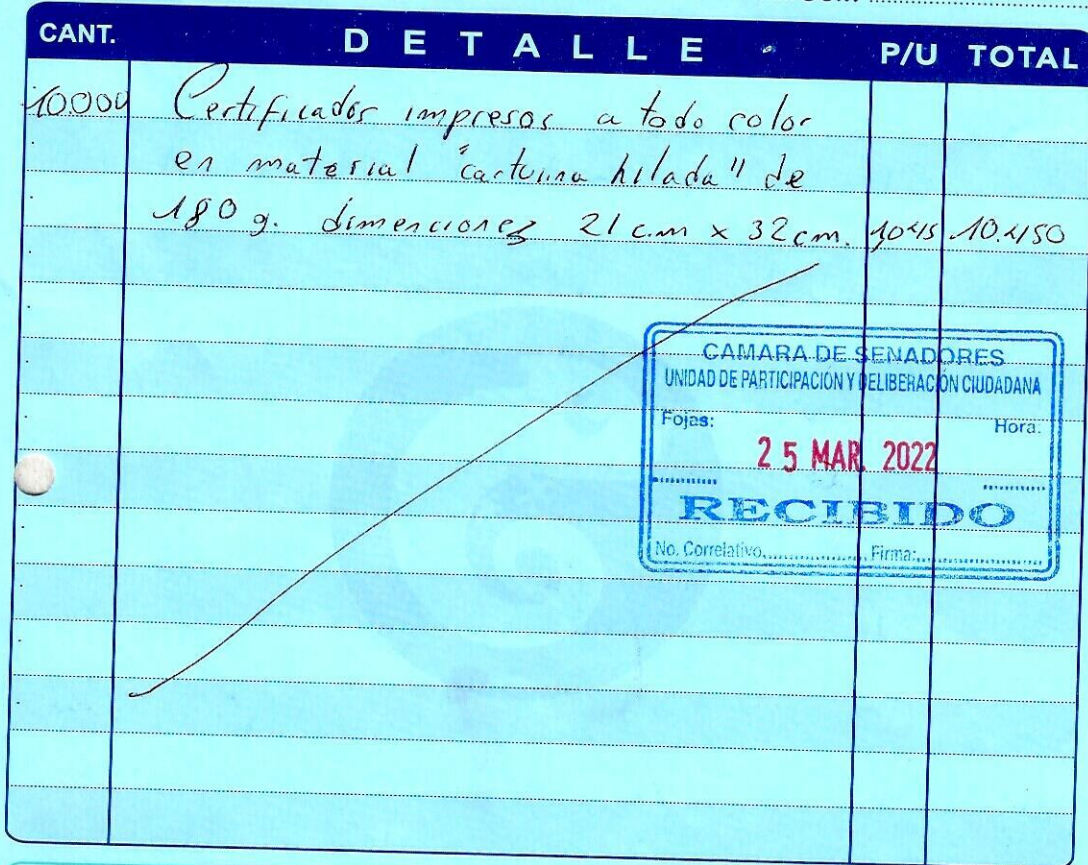 CANT. DETALLE P/U TOTAL
10000 Certificados impresos a todo color
en material "cartulina hilada" de
180 g. dimenciones 21 cm x 32 cm. 1,045 10.450
CAMARA DE SENADORES
UNIDAD DE PARTICIPACION Y DELIBERACION CIUDADANA
Fojas: Hora:
25 MAR. 2022
RECIBIDO
No. Correlativo Firma: